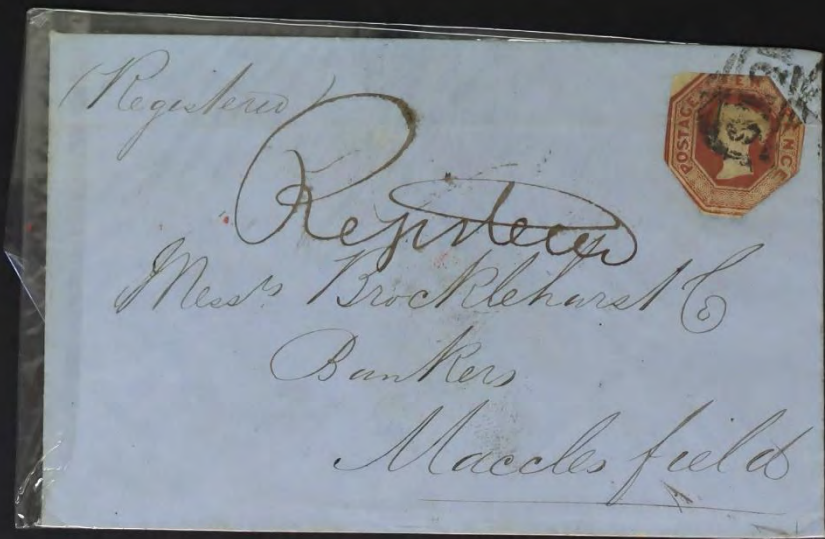 (Registered)
POSTAGE TEN PENCE
Registered
Mess.rs Brocklehurst & Co
Bankers
Macclesfield